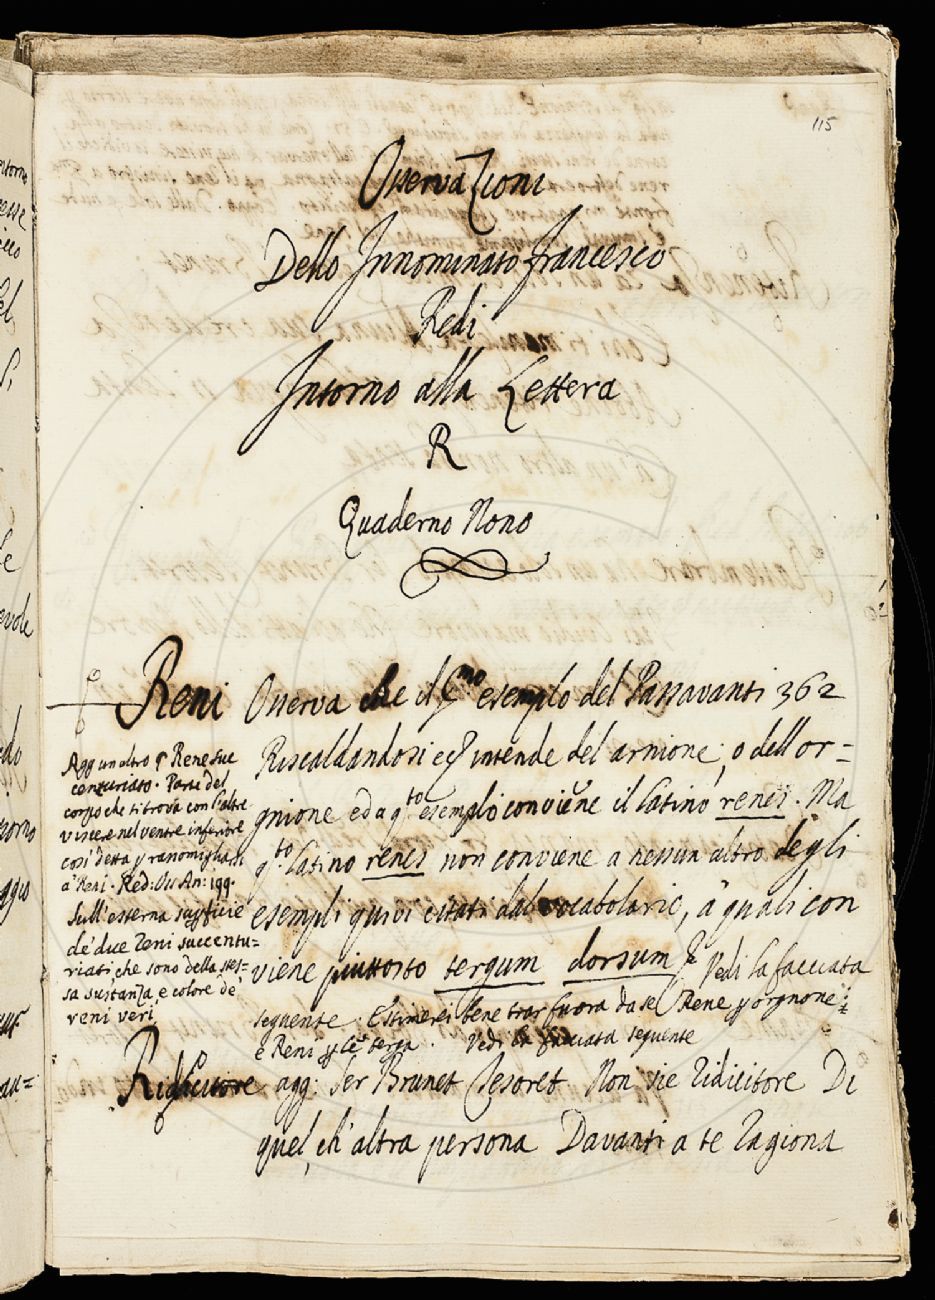 115
Osservazioni
Dello Innominato francesco
Redi
Intorno alla Lettera
R
Quaderno Nono
Reni Osserva che il esempio del Passavanti 362
Riscaldandosi ec intende del arnione, o dell or=
gnione ed a q.to esemplo conviene il latino renes. Ma
q.to latino renes non conviene a nessun altro degli
esempli quivi citati dal vocabolario, a quali con
viene piuttosto tergum dorsum Vedi la facciata
seguente. Estimerei bene trar fuora da se Rene p orgnone
e Reni p terga. Vedi la facciata seguente
Agg un altro Rene suc
centuriato. Parte del
corpo che si trova con l'altre
viscere nel ventre inferiore
così detta p
a' Reni. Red: Oss An: 199.
Sull'esterna supficie
de' due reni succentu=
riati che sono della stes=
sa sustanza, e colore de'
reni veri
Ridicitore agg: Ser Brunet Tesoret. Non sie ridicitore Di
quel, ch' altra persona Davanti a te ragiona